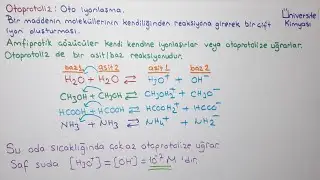 Otoprotoliz: Oto iyonlaşma.
Üniversite
Kimyası
Bir maddenin moleküllerinin kendiliğinden reaksiyona girerek bir çift
iyon oluşturması.
Amfiprotik çözücüler kendi kendine iyonlaşırlar veya otoprotolize uğrarlar.
Otoprotoliz de bir asit/baz reaksiyonudur.
baz1 asit2 asit1 baz2
H₂O + H₂O ⇌ H₃O⁺ + OH⁻
CH₃OH + CH₃OH ⇌ CH₃OH₂⁺ + CH₃O⁻
HCOOH + HCOOH ⇌ HCOOH₂⁺ + HCOO⁻
NH₃ + NH₃ ⇌ NH₄⁺ + NH₂⁻
Su oda sıcaklığında çok az otoprotolize uğrar.
Saf suda [H₃O⁺] = [OH⁻] = 10⁻⁷ M 'dır.